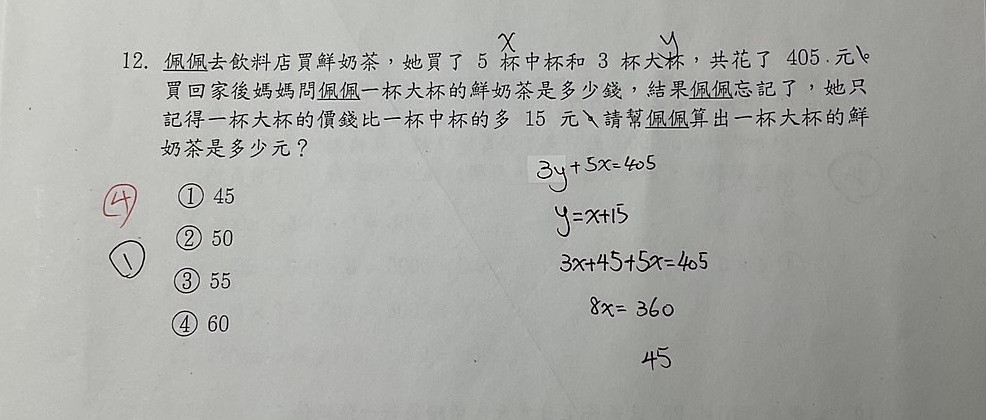 x y
12. 佩佩去飲料店買鮮奶茶，她買了 5 杯中杯和 3 杯大杯，共花了 405 元。
買回家後媽媽問佩佩一杯大杯的鮮奶茶是多少錢，結果佩佩忘記了，她只
記得一杯大杯的價錢比一杯中杯的多 15 元、請幫佩佩算出一杯大杯的鮮
奶茶是多少元？
3y+5x=405
④
① 45
y=x+15
② 50
①
3x+45+5x=405
③ 55
8x=360
④ 60
45